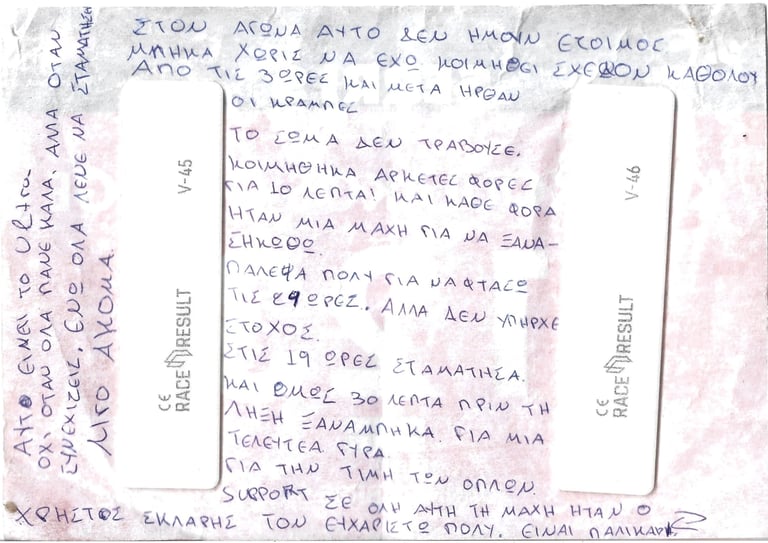 ΣΤΟΝ ΑΓΩΝΑ ΑΥΤΟ ΔΕΝ ΗΜΟΥΝ ΕΤΟΙΜΟΣ
ΜΠΗΚΑ ΧΩΡΙΣ ΝΑ ΕΧΩ ΚΟΙΜΗΘΕΙ ΣΧΕΔΟΝ ΚΑΘΟΛΟΥ
ΑΠΟ ΤΙΣ 3 ΩΡΕΣ ΚΑΙ ΜΕΤΑ ΗΡΘΑΝ
ΟΙ ΚΡΑΜΠΕΣ
ΤΟ ΣΩΜΑ ΔΕΝ ΤΡΑΒΟΥΣΕ.
ΚΟΙΜΗΘΗΚΑ ΑΡΚΕΤΕΣ ΦΟΡΕΣ
ΓΙΑ 10 ΛΕΠΤΑ! ΚΑΙ ΚΑΘΕ ΦΟΡΑ
ΗΤΑΝ ΜΙΑ ΜΑΧΗ ΓΙΑ ΝΑ ΞΑΝΑ-
ΣΗΚΩΘΩ.
ΠΑΛΕΨΑ ΠΟΛΥ ΓΙΑ ΝΑ ΦΤΑΣΩ
ΤΙΣ ΩΡΕΣ. ΑΛΛΑ ΔΕΝ ΥΠΗΡΧΕ
ΣΤΟΧΟΣ.
ΣΤΙΣ 19 ΩΡΕΣ ΣΤΑΜΑΤΗΣΑ.
ΚΑΙ ΟΜΩΣ 30 ΛΕΠΤΑ ΠΡΙΝ ΤΗ
ΛΗΞΗ ΞΑΝΑΜΠΗΚΑ. ΓΙΑ ΜΙΑ
ΤΕΛΕΥΤΕΑ ΓΥΡΑ.
ΓΙΑ ΤΗΝ ΤΙΜΗ ΤΩΝ ΟΠΛΩΝ.
SUPPORT ΣΕ ΟΛΗ ΑΥΤΗ ΤΗ ΜΑΧΗ ΗΤΑΝ Ο
ΧΡΗΣΤΟΣ ΣΚΛΑΡΗΣ ΤΟΝ ΕΥΧΑΡΙΣΤΩ ΠΟΛΥ. ΕΙΝΑΙ ΠΑΛΙΚΑΡΙ
ΑΥΤΟ ΕΙΝΑΙ ΤΟ Ultra
ΟΧΙ, ΟΤΑΝ ΟΛΑ ΠΑΝΕ ΚΑΛΑ. ΑΛΛΑ ΟΤΑΝ
ΣΥΝΕΧΙΖΕΙΣ, ΕΝΩ ΟΛΑ ΛΕΝΕ ΝΑ ΣΤΑΜΑΤΗΣΗΣ
ΛΙΓΟ ΑΚΟΜΑ.
V-45
CE
RACE RESULT
V-46
CE
RACE RESULT